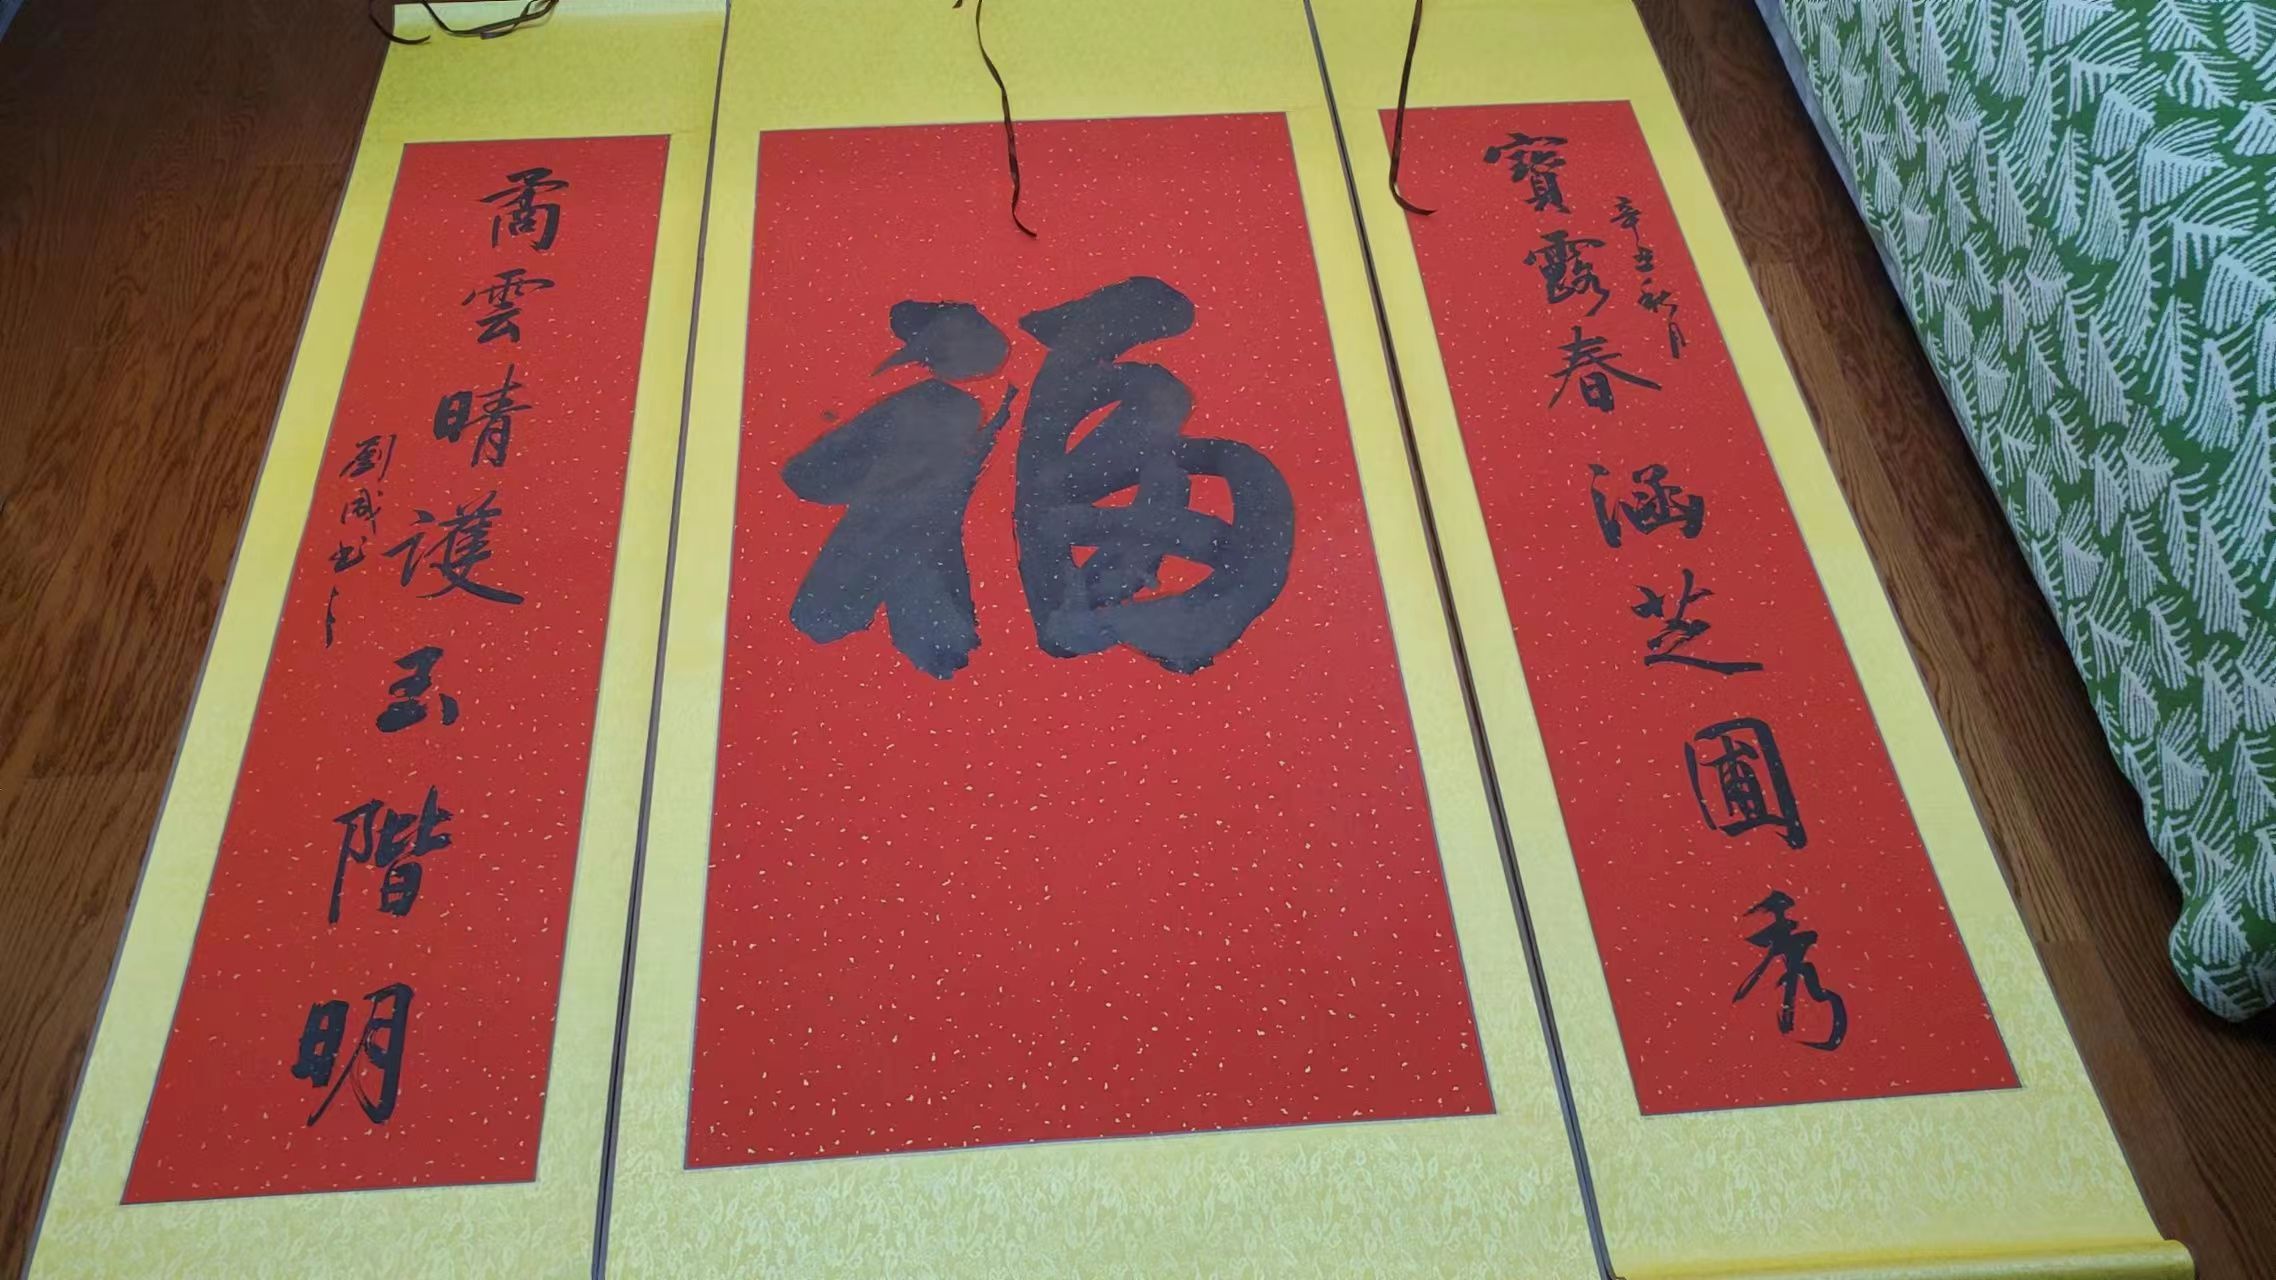 寶露春涵芝圃秀
辛丑秋月
福
矞雲晴護玉階明